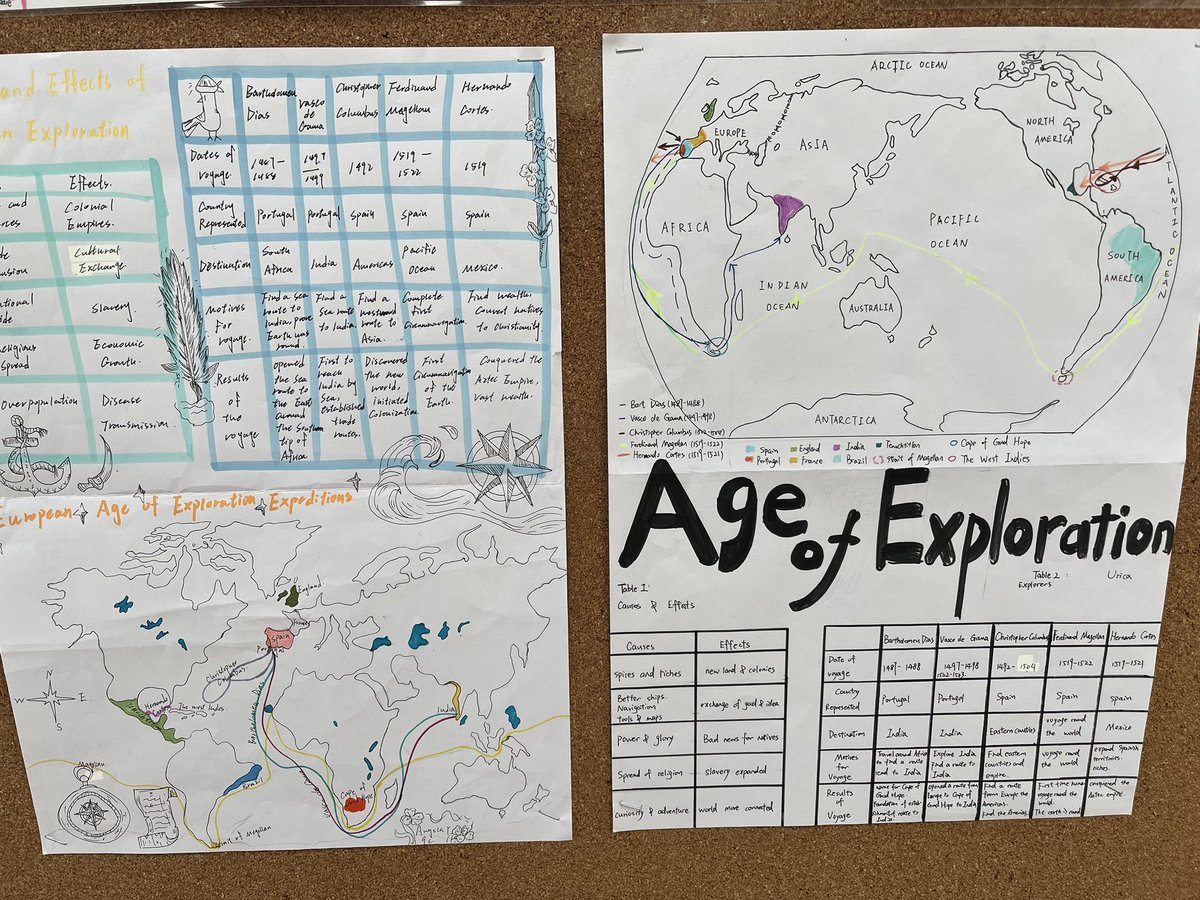 and Effects of
n Exploration
Effects.
and
rces
Colonial
Empires.
Cultural
Exchange
usion
Slavery.
ational
ide
Economic
Growth.
eligious
Spread
Overpopulation
Disease
Transmission.
Bartholomeu
Dias
Vasco
de
Gama
Christopher
Columbus
Ferdinand
Magellan
Hernando
Cortes.
Dates of
voyage
1487-
1488
1497
1499
1492
1519-
1522
1519
Country
Represented
Portugal
Portugal
Spain
Spain
Spain
Destination
South
Africa
India
Americas
Pacific
Ocean
Mexico.
Motives
for
voyage.
Find a sea
route to
India, prove
Earth was
round.
Find a
sea route
to India
Find a
westward
route to
Asia.
Complete
first
Circumnavigation
Find wealth.
Convert natives
to Christianity
Results
of
the
voyage
opened
the Sea
route to
the East
around
the Southern
tip of
Africa
First to
reach
India by
Sea,
established
trade
routes.
Discovered
the new
world,
initiated
Colonization.
First
Circumnavigation
of the
Earth.
Conquered the
Aztec Empire,
vast wealth.
European Age of Exploration Expeditions
England
Spain
Christopher
Columbus
Hernando
The West Indies.
India
N
W
E
S
Magellan
Brazil
Cape of
Strait of Magellan
ARCTIC OCEAN
NORTH
AMERICA
EUROPE
ASIA
AFRICA
PACIFIC
OCEAN
ATLANTIC OCEAN
INDIAN
OCEAN
SOUTH
AMERICA
AUSTRALIA
ANTARCTICA
Bart Dias (1487-1488)
Vasco de Gama (1497-1498)
Christopher Columbus
Ferdinand Magellan (1519-1522)
Hernando Cortes (1519-1521)
Spain
England
India
Tenochtitlan
Cape of Good Hope
Portugal
France
Brazil
Strait of Magellan
The West Indies
Age of Exploration
Table 1:
Causes & Effects
Table 2:
Explorers
Urica
Causes
Effects
spires and riches
new land & colonies
Better ships.
Navigation
tools & maps
exchange of good & idea
Power & glory
Bad news for natives
Spread of religion
slavery expanded
curiosity & adventure
world more connected
Bartholomeu Dias
Vasco de Gama
Christopher Columbus
Ferdinand Magellan
Hernando Cortes
Date of
voyage
1487-1488
1497-1498
1502-1503.
1492-1504
1519-1522
1519-1521
Country
Represented
Portugal
Portugal
Spain
Spain
Spain
Destination
India
India
Eastern countries
voyage round
the world
Mexico
Motives
for
Voyage
Travel around Africa
to find a route
lead to India
Explore India
Find a route to
India
Find eastern
countries and
empire.
voyage round
the world
expand Spanish
territories.
riches.
Results
of
Voyage
name for Cape of
Good Hope.
Foundation of
route to
India.
opened a route from
Europe to Cape of
Good Hope to India
Find a route
from Europe the
Americas.
Find the Americas
First time
voyage round the
world.
The earth is round
conquered the